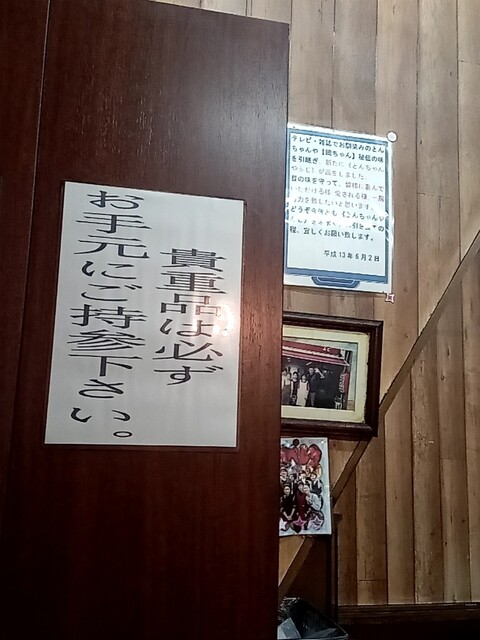 貴重品は必ず
お手元にご持参下さい。
テレビ・雑誌でお馴染みのとん
ちゃんや【岡ちゃん】秘伝の味
を引継ぎ、新たに《とんちゃん
が誕生しました。
昔の味を守って、皆様に喜んで
いただける様 愛される様、一層
努力を致したいと思います。
どうぞ今後とも
程、宜しくお願い致します。
平成13年6月2日